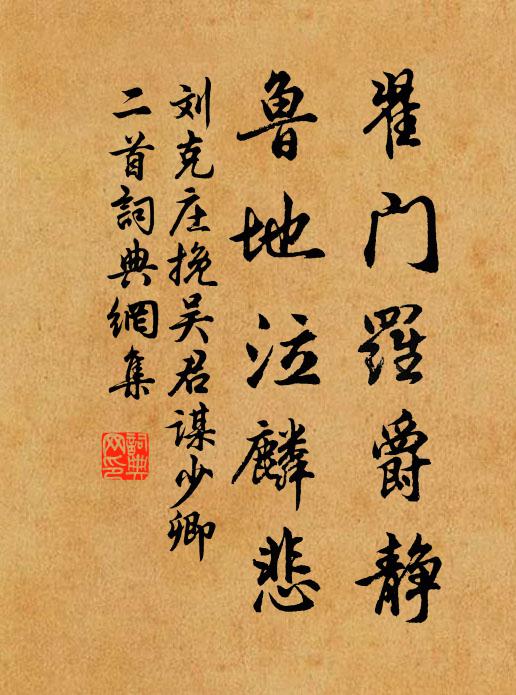 翟门羅爵静
魯地泣麟悲
刘克庄挽吴君謀少卿
二首詞典網集
詞典
网印